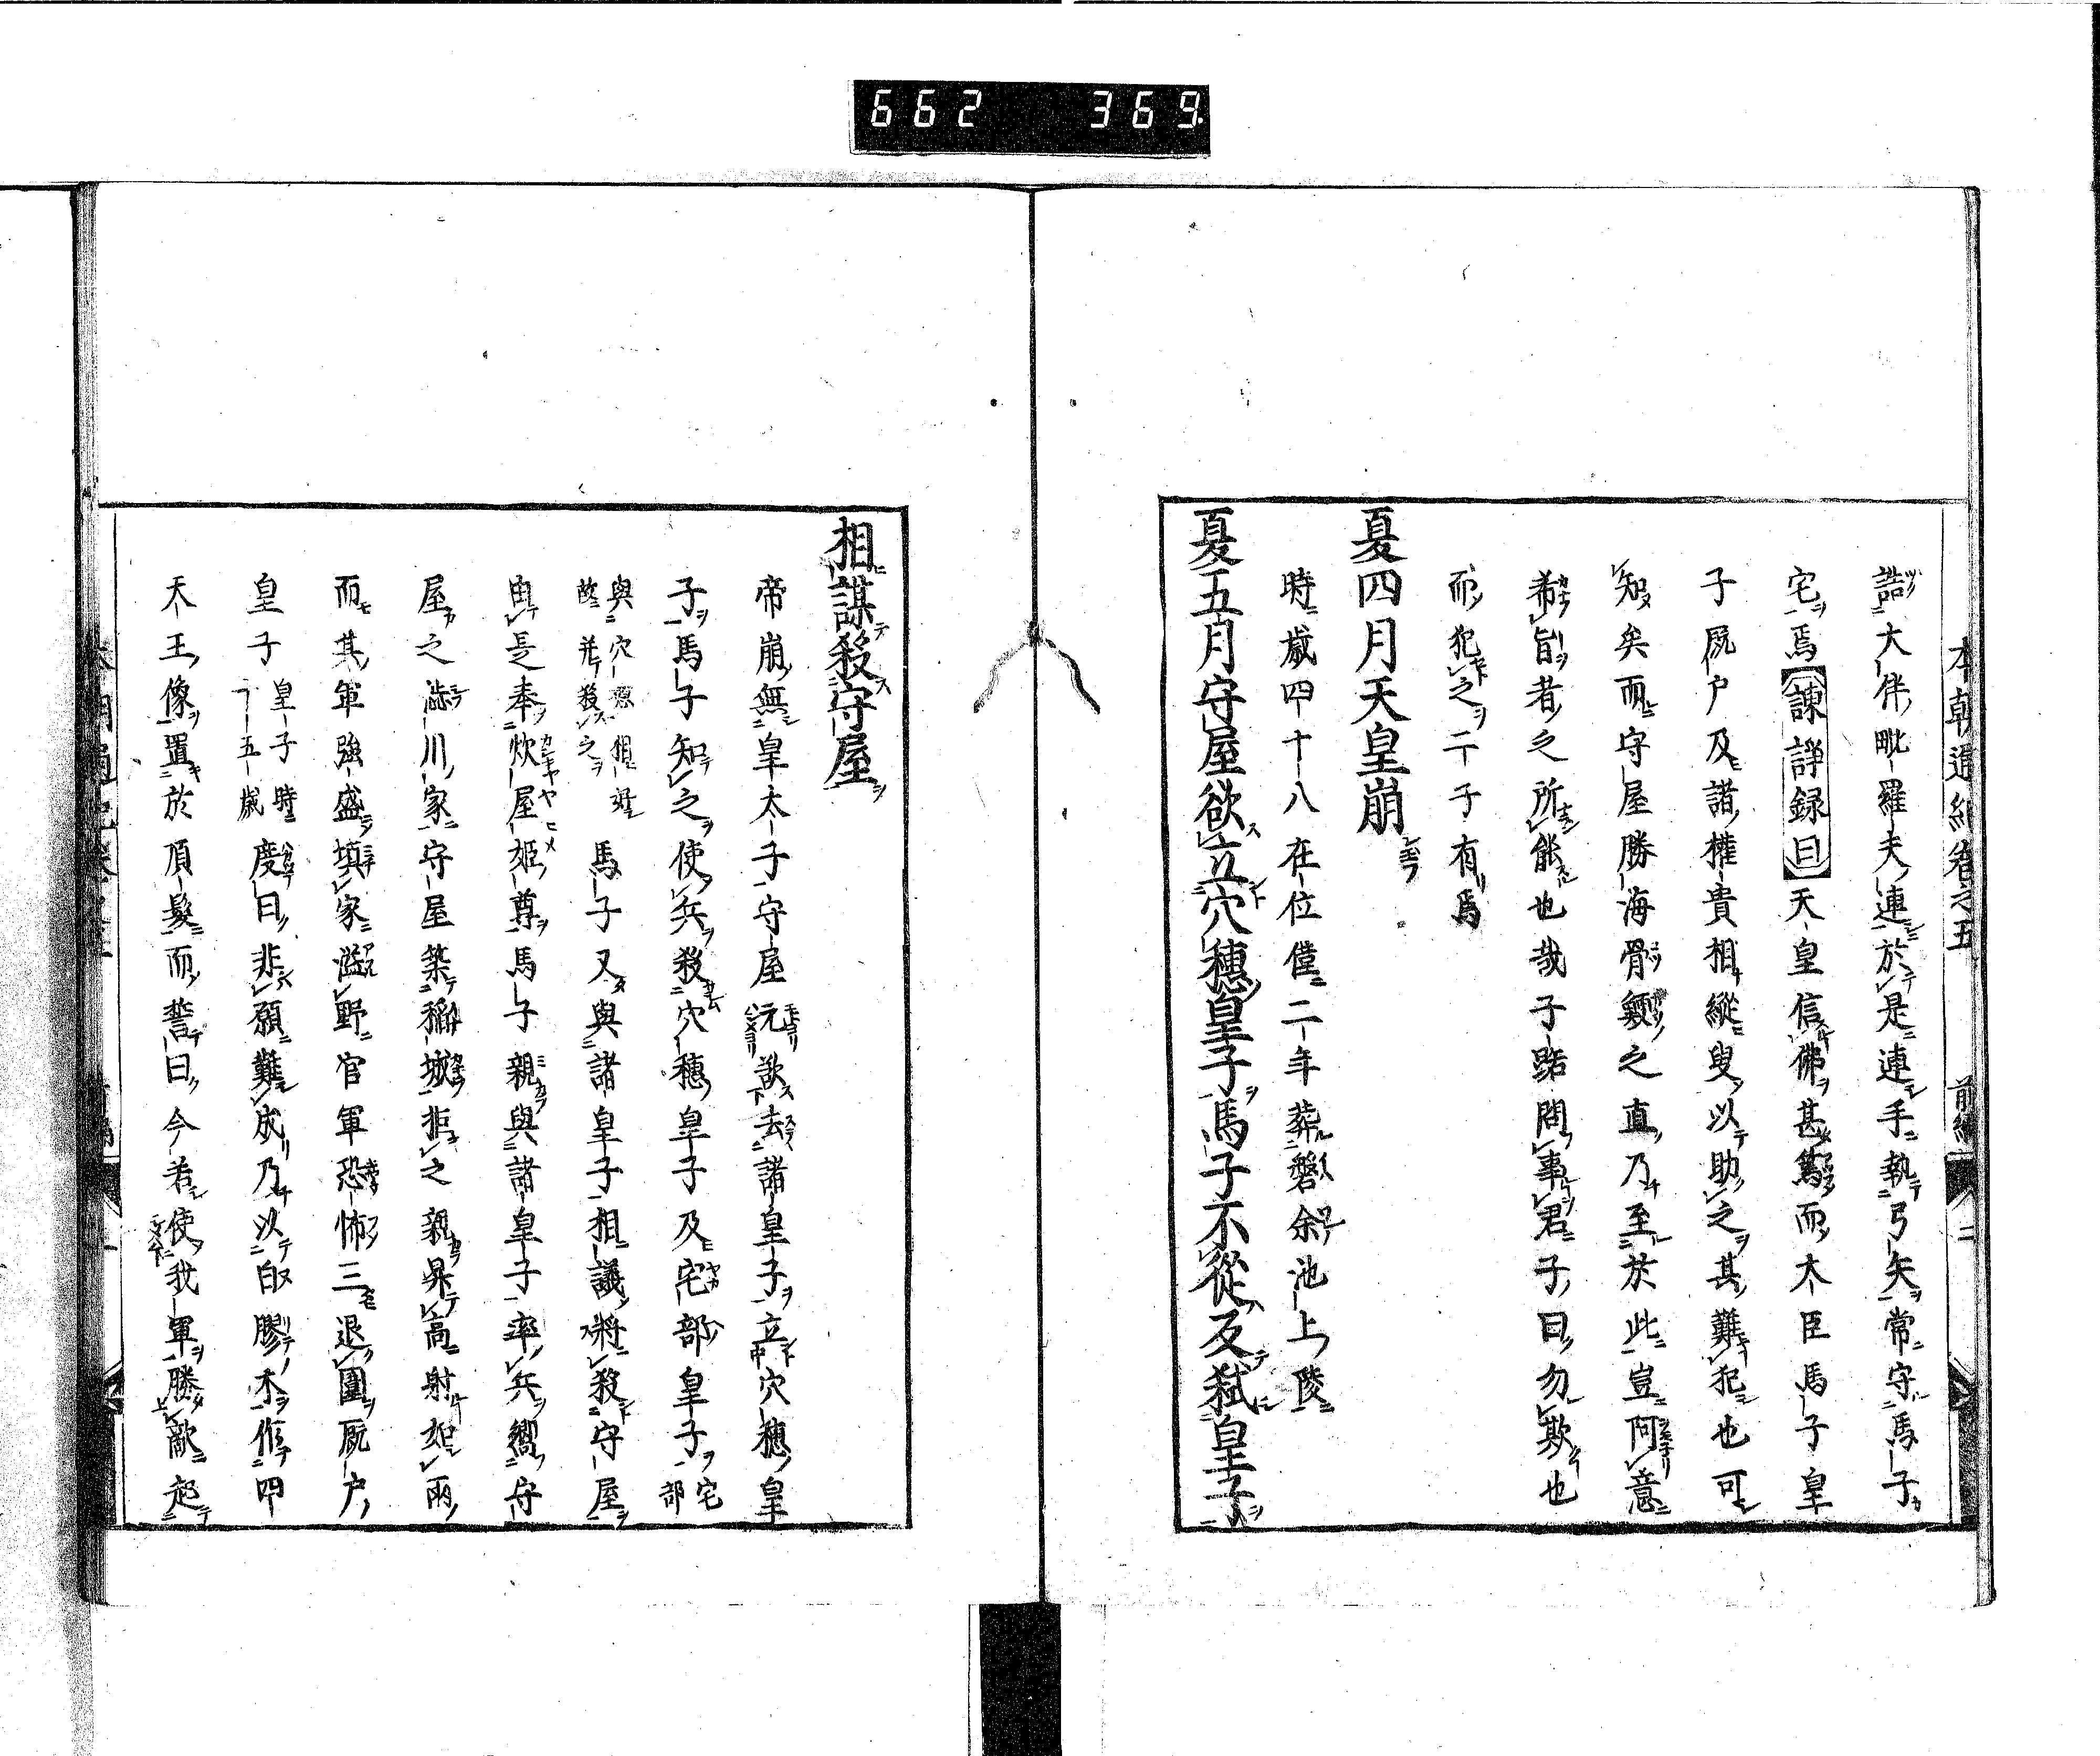 662 369
本朝通紀卷之五 前編 二
誥大伴毗羅夫連於是連手執弓矢常守馬子
宅焉諫諍録曰天皇信佛甚篤而大臣馬子皇
子厩戸及諸權貴相縱臾以助之其難犯也可
知矣而守屋勝海骨鯁之直乃至於此豈阿意
希旨者之所能也哉子路問事君子曰勿欺也
而犯之二子有焉
夏四月天皇崩
時歳四十八在位僅二年葬磐余池上陵
夏五月守屋欲立穴穗皇子馬子不從反弑皇子
相謀殺守屋
帝崩無皇太子守屋元欲去諸皇子立穴穗皇
子馬子知之使兵殺穴穗皇子及宅部皇子宅部
與穴穗相好故并殺之馬子又與諸皇子相議將殺守屋
由是奉炊屋姬尊馬子親與諸皇子率兵嚮守
屋之澁川家守屋築稻城拒之親昇高射如雨
而其軍強盛填家溢野官軍恐怖三退圍厩戸
皇子皇子時十五歳度曰非願難成乃以白膠木作四
天王像置於頂髮而誓曰今若使我軍勝敵起